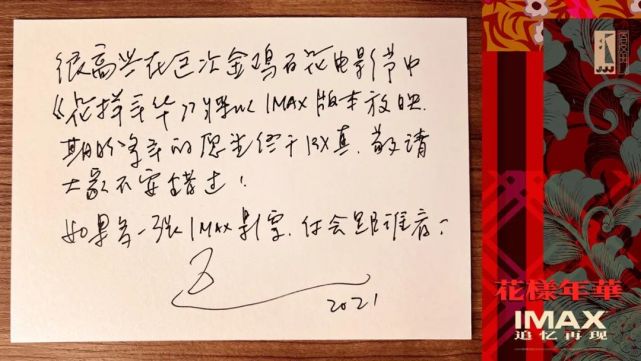 很高兴在是次金鸡百花电影节中
《花样年华》得以IMAX版本放映.
期盼多年的愿望终于成真,敬请
大家不要错过!
如果多一张IMAX影票,你会跟谁看?
2021
花樣年華
IMAX
追忆再现